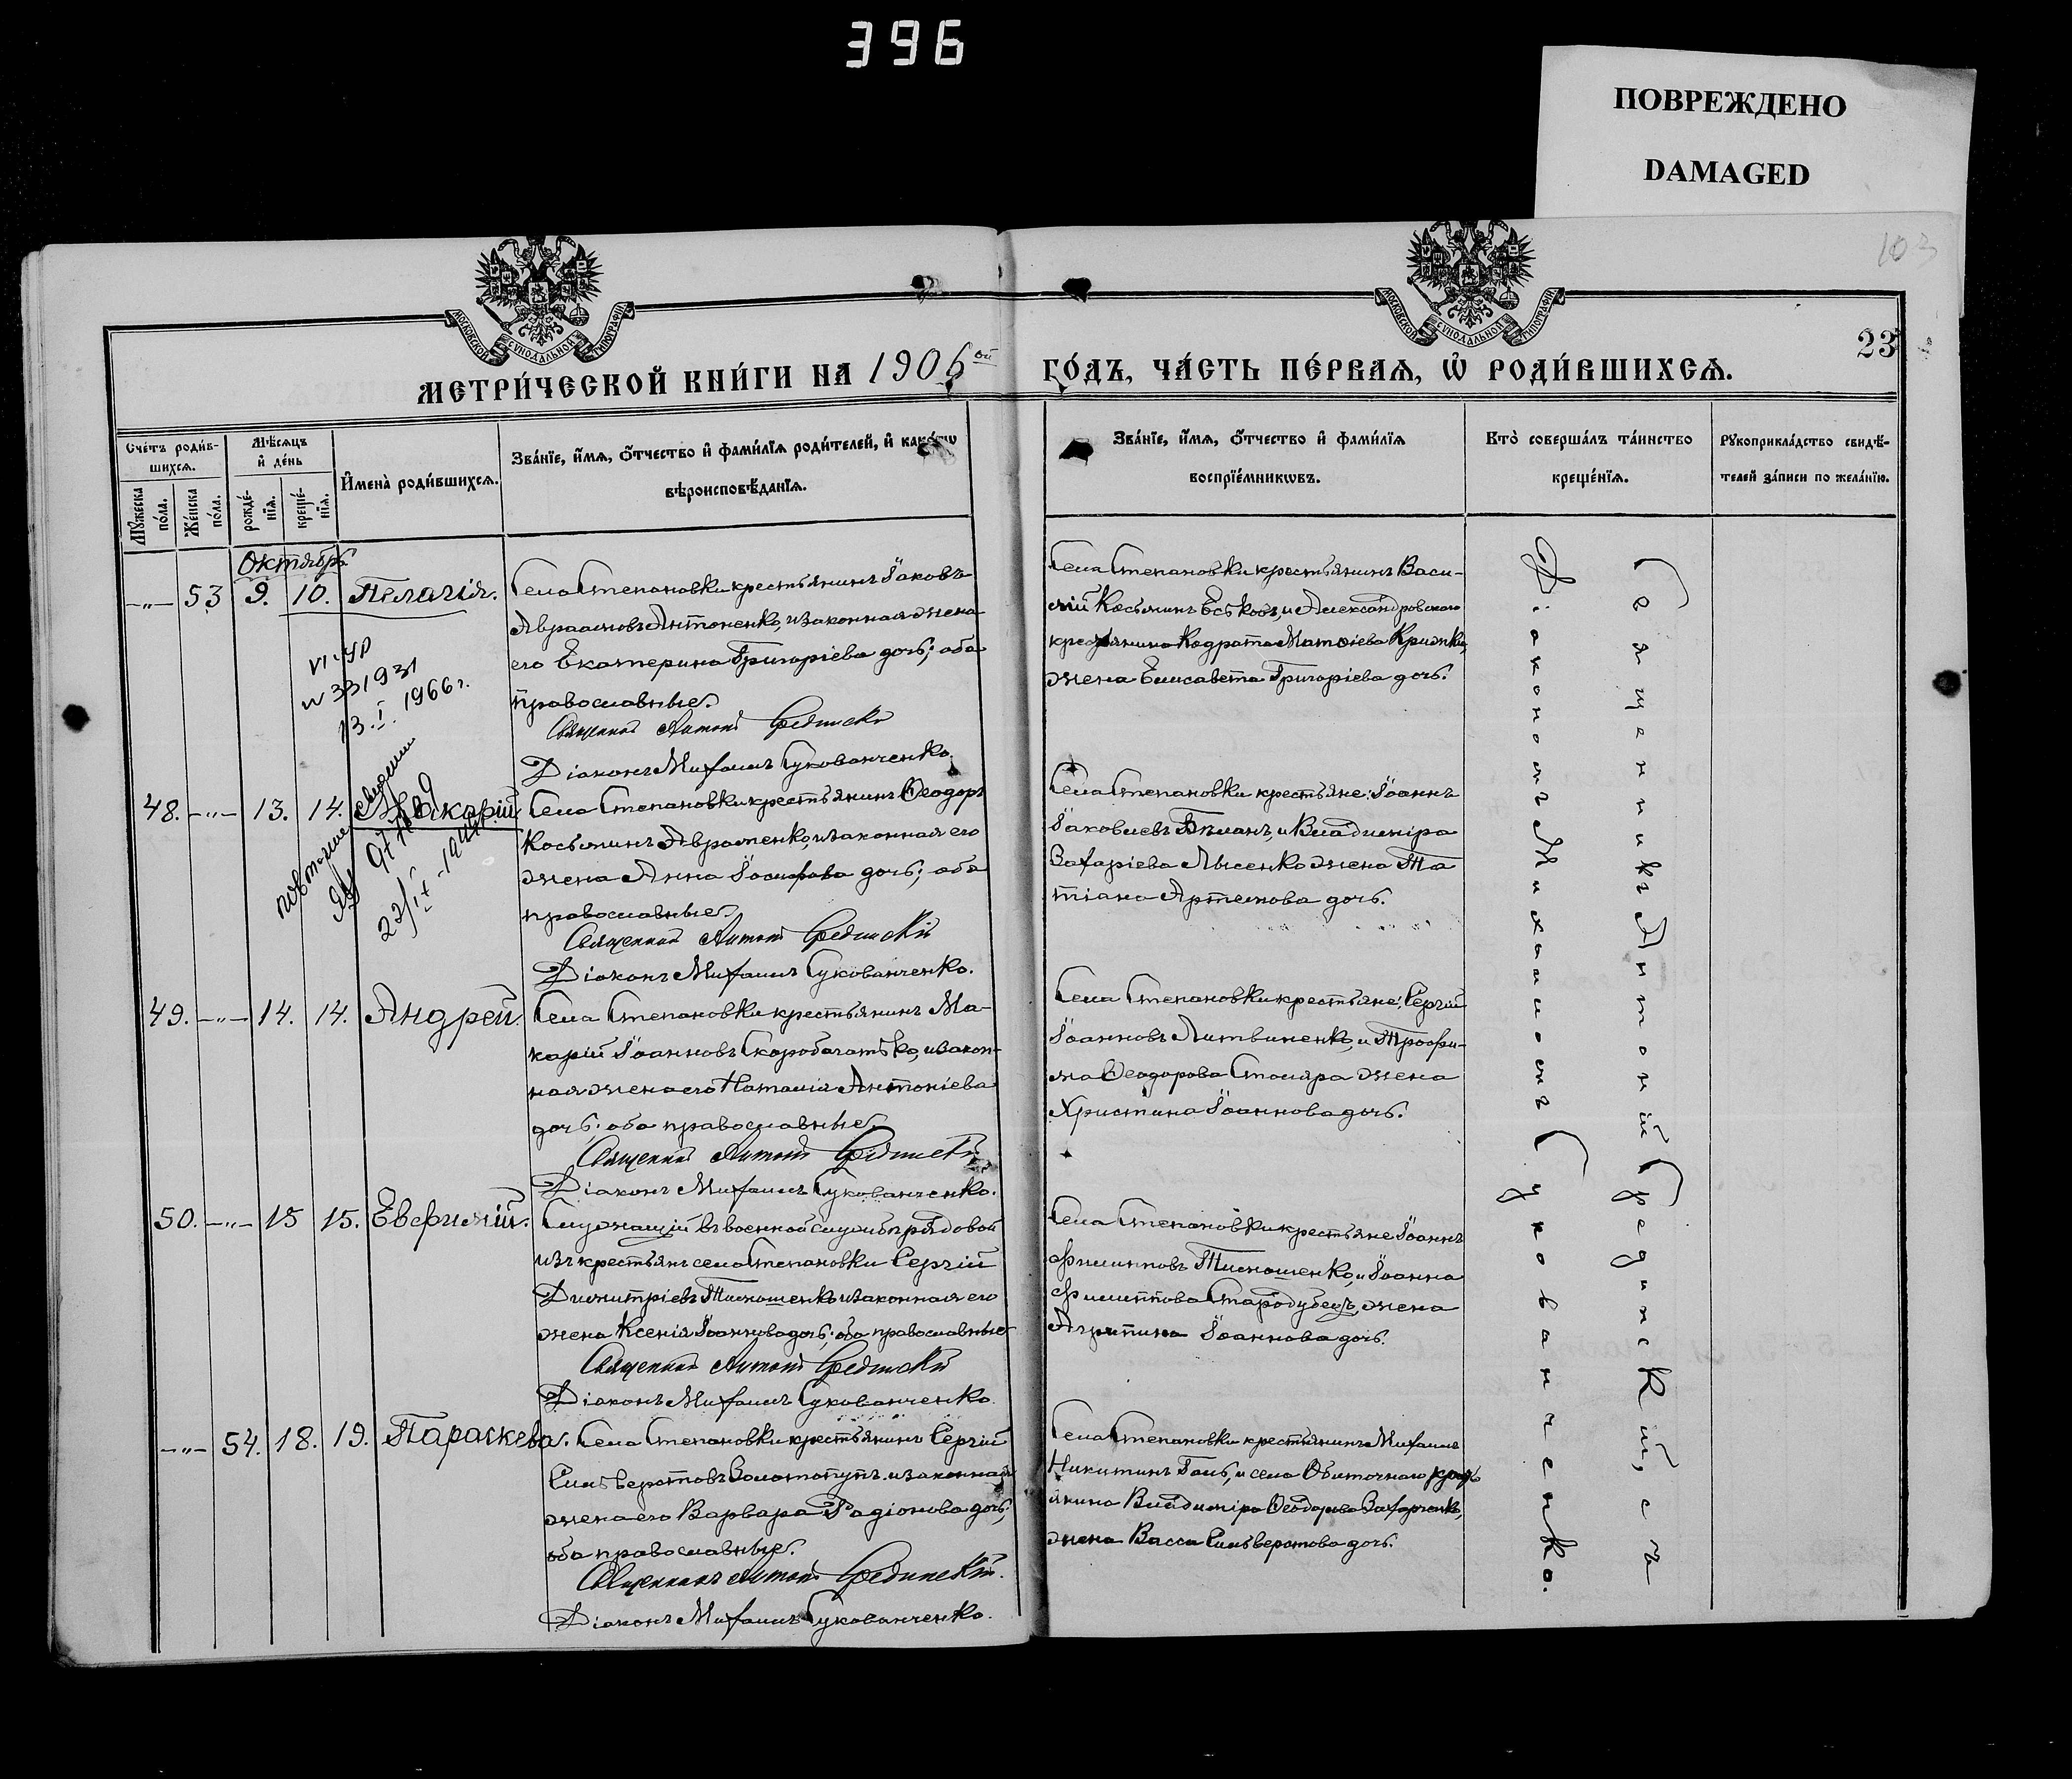 396
ПОВРЕЖДЕНО
DAMAGED
103
МОСКОВСКОЙ СѴНОДАЛЬНОЙ ТИПОГРАФІИ
МОСКОВСКОЙ СѴНОДАЛЬНОЙ ТИПОГРАФІИ
23
МЕТРИ́ЧЕСКОЙ КНИ́ГИ НА 1906ой ГО́ДЪ, ЧА́СТЬ ПЕ́РВАѦ, Ѡ҆ РОДИ́ВШИХСѦ.
Сче́тъ роди́в-
шихсѧ.
Мꙋ́жеска по́ла.
Же́нска по́ла.
Мѣ́сѧцъ
и҆ де́нь
рожде́-
нїѧ.
креще́-
нїѧ.
И҆мена̀ роди́вшихсѧ.
Зва́нїе, и҆́мѧ, ѻ҆́тчество и҆ фами́лїѧ роди́телей, и҆ како́гѡ
вѣроисповѣ́данїѧ.
Зва́нїе, и҆́мѧ, ѻ҆́тчество и҆ фами́лїѧ
воспрїе́мникѡвъ.
Кто̀ соверша́лъ та́инство
креще́нїѧ.
Рꙋкоприкла́дство свидѣ́-
телей за́писи по жела́нїю.
Октябрь
-„- 53 9. 10. Пелагія.
Села Степановки крестьянинъ Іаковъ
Авраамовъ Антоненко, и законная жена
его Екатерина Григоріева дочь; оба
православные.
Священникъ Антоній Срединскій
Діаконъ Михаилъ Сукованченко.
Села Степановки крестьянинъ Васи-
лій Косьминъ Еськовъ, и Александровского
крестьянина Кодрата Матѳіева
жена Елисавета Григоріева дочь.
N 331931
13. I. 1966 г.
48. -„- 13. 14. Макарій
повторные
Села Степановки крестьянинъ Ѳеодоръ
Косьминъ Авраменко, и законная его
жена Анна Іосифова дочь; оба
православные.
Священникъ Антоній Срединскій
Діаконъ Михаилъ Сукованченко.
Села Степановки крестьяне: Іоаннъ
Іаковлевъ Бѣланъ, и Владиміра
Захаріева Лысенко жена Та
тіана Артемова дочь.
49. -„- 14. 14. Андрей.
Села Степановки крестьянинъ Ма-
карій Іоанновъ Скоробагатько, и закон-
ная жена его Наталія Антоніева
дочь; оба православные.
Священникъ Антоній Срединскій
Діаконъ Михаилъ Сукованченко.
Села Степановки крестьяне: Сергій
Іоанновъ Литвиненко, и Трофи-
ма Ѳеодорова Столяра жена
Христина Іоаннова дочь.
50. -„- 15 15. Евфимій.
Служащій въ военной службѣ рядовой
изъ крестьянъ села Степановки Сергій
Димитріевъ Тимошенко и законная его
жена Ксенія Іоаннова дочь; оба православные
Священникъ Антоній Срединскій
Діаконъ Михаилъ Сукованченко.
Села Степановки крестьяне Іоаннъ
Филипповъ Тимошенко, и Іоанна
Филиппова Стародубецъ, жена
Агрипина Іоаннова дочь.
-„- 54. 18. 19. Параскева.
Села Степановки крестьянинъ Сергій
Сильверстовъ Золотопупъ и законная
жена его Варвара Радіонова дочь;
оба православные.
Священникъ Антоній Срединскій.
Діаконъ Михаилъ Сукованченко.
Села Степановки крестьянинъ Михаилъ
Никитинъ Галь, и села Обиточнаго кресть
янина Владиміра Ѳеодорова Захарченко,
жена Васса Сильверстова дочь.
Священникъ Антоній Срединскій, съ
Діакономъ Михаиломъ Сукованченко.